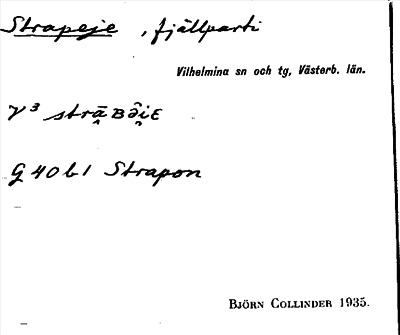 Strapeje, fjällparti
Vilhelmina sn och tg, Västerb. län.
V³
G 40 b 1 Strapon
BJÖRN COLLINDER 1935.